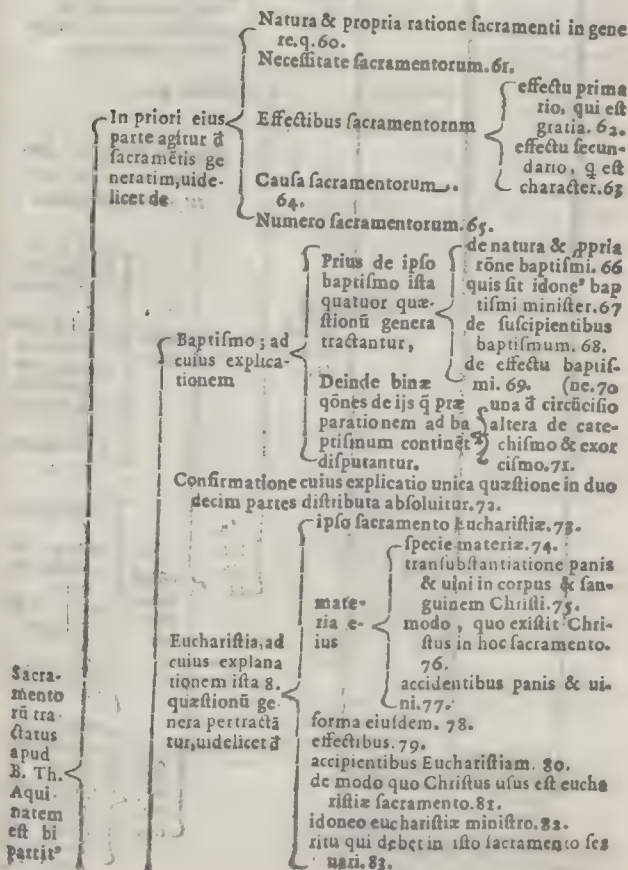 Natura & propria ratione sacramenti in gene
re.q.60.
Necessitate sacramentorum.61.
In priori eius
parte agitur đ
sacramētis ge
neratim,uide-
licet de
Effectibus sacramentorum
effectu prima
rio, qui est
gratia. 62.
effectu secun-
dario, q est
character.63
Causa sacramentorum.
64.
Numero sacramentorum.65.
Baptismo ; ad
cuius explica-
tionem
Prius de ipso
baptismo ista
quatuor quæ-
stionū genera
tractantur,
de natura & ꝓpria
rōne baptismi. 66
quis sit idoneꝰ bap
tismi minister.67
de suscipientibus
baptismum. 68.
de effectu baptis-
mi. 69.
Deinde binæ
qōnes de ijs q̄ præ
parationem ad ba
ptismum continēt
disputantur.
una đ circūcisio
(ne.70
altera de cate-
chismo & exor
cismo.71.
Confirmatione cuius explicatio unica quæstione in duo
decim partes distributa absoluitur.72.
Eucharistia,ad
cuius explana
tionem ista 8.
quæstionū ge-
nera pertractā
tur,uidelicet đ
ipso sacramento Eucharistiæ.73.
mate-
ria e-
ius
specie materiæ.74.
transubstantiatione panis
& uini in corpus & san-
guinem Christi.75.
modo , quo existit Chri-
stus in hoc sacramento.
76.
accidentibus panis & ui-
ni.77.
forma eiusdem. 78.
effectibus.79.
accipientibus Eucharistiam. 80.
de modo quo Christus usus est eucha
ristiæ sacramento.81.
idoneo eucharistiæ ministro.82.
ritu qui debet in isto sacramento ser
uari.83.
Sacra-
mento
rū tra-
ctatus
apud
B. Th.
Aqui-
natem
est bi
partitꝰ